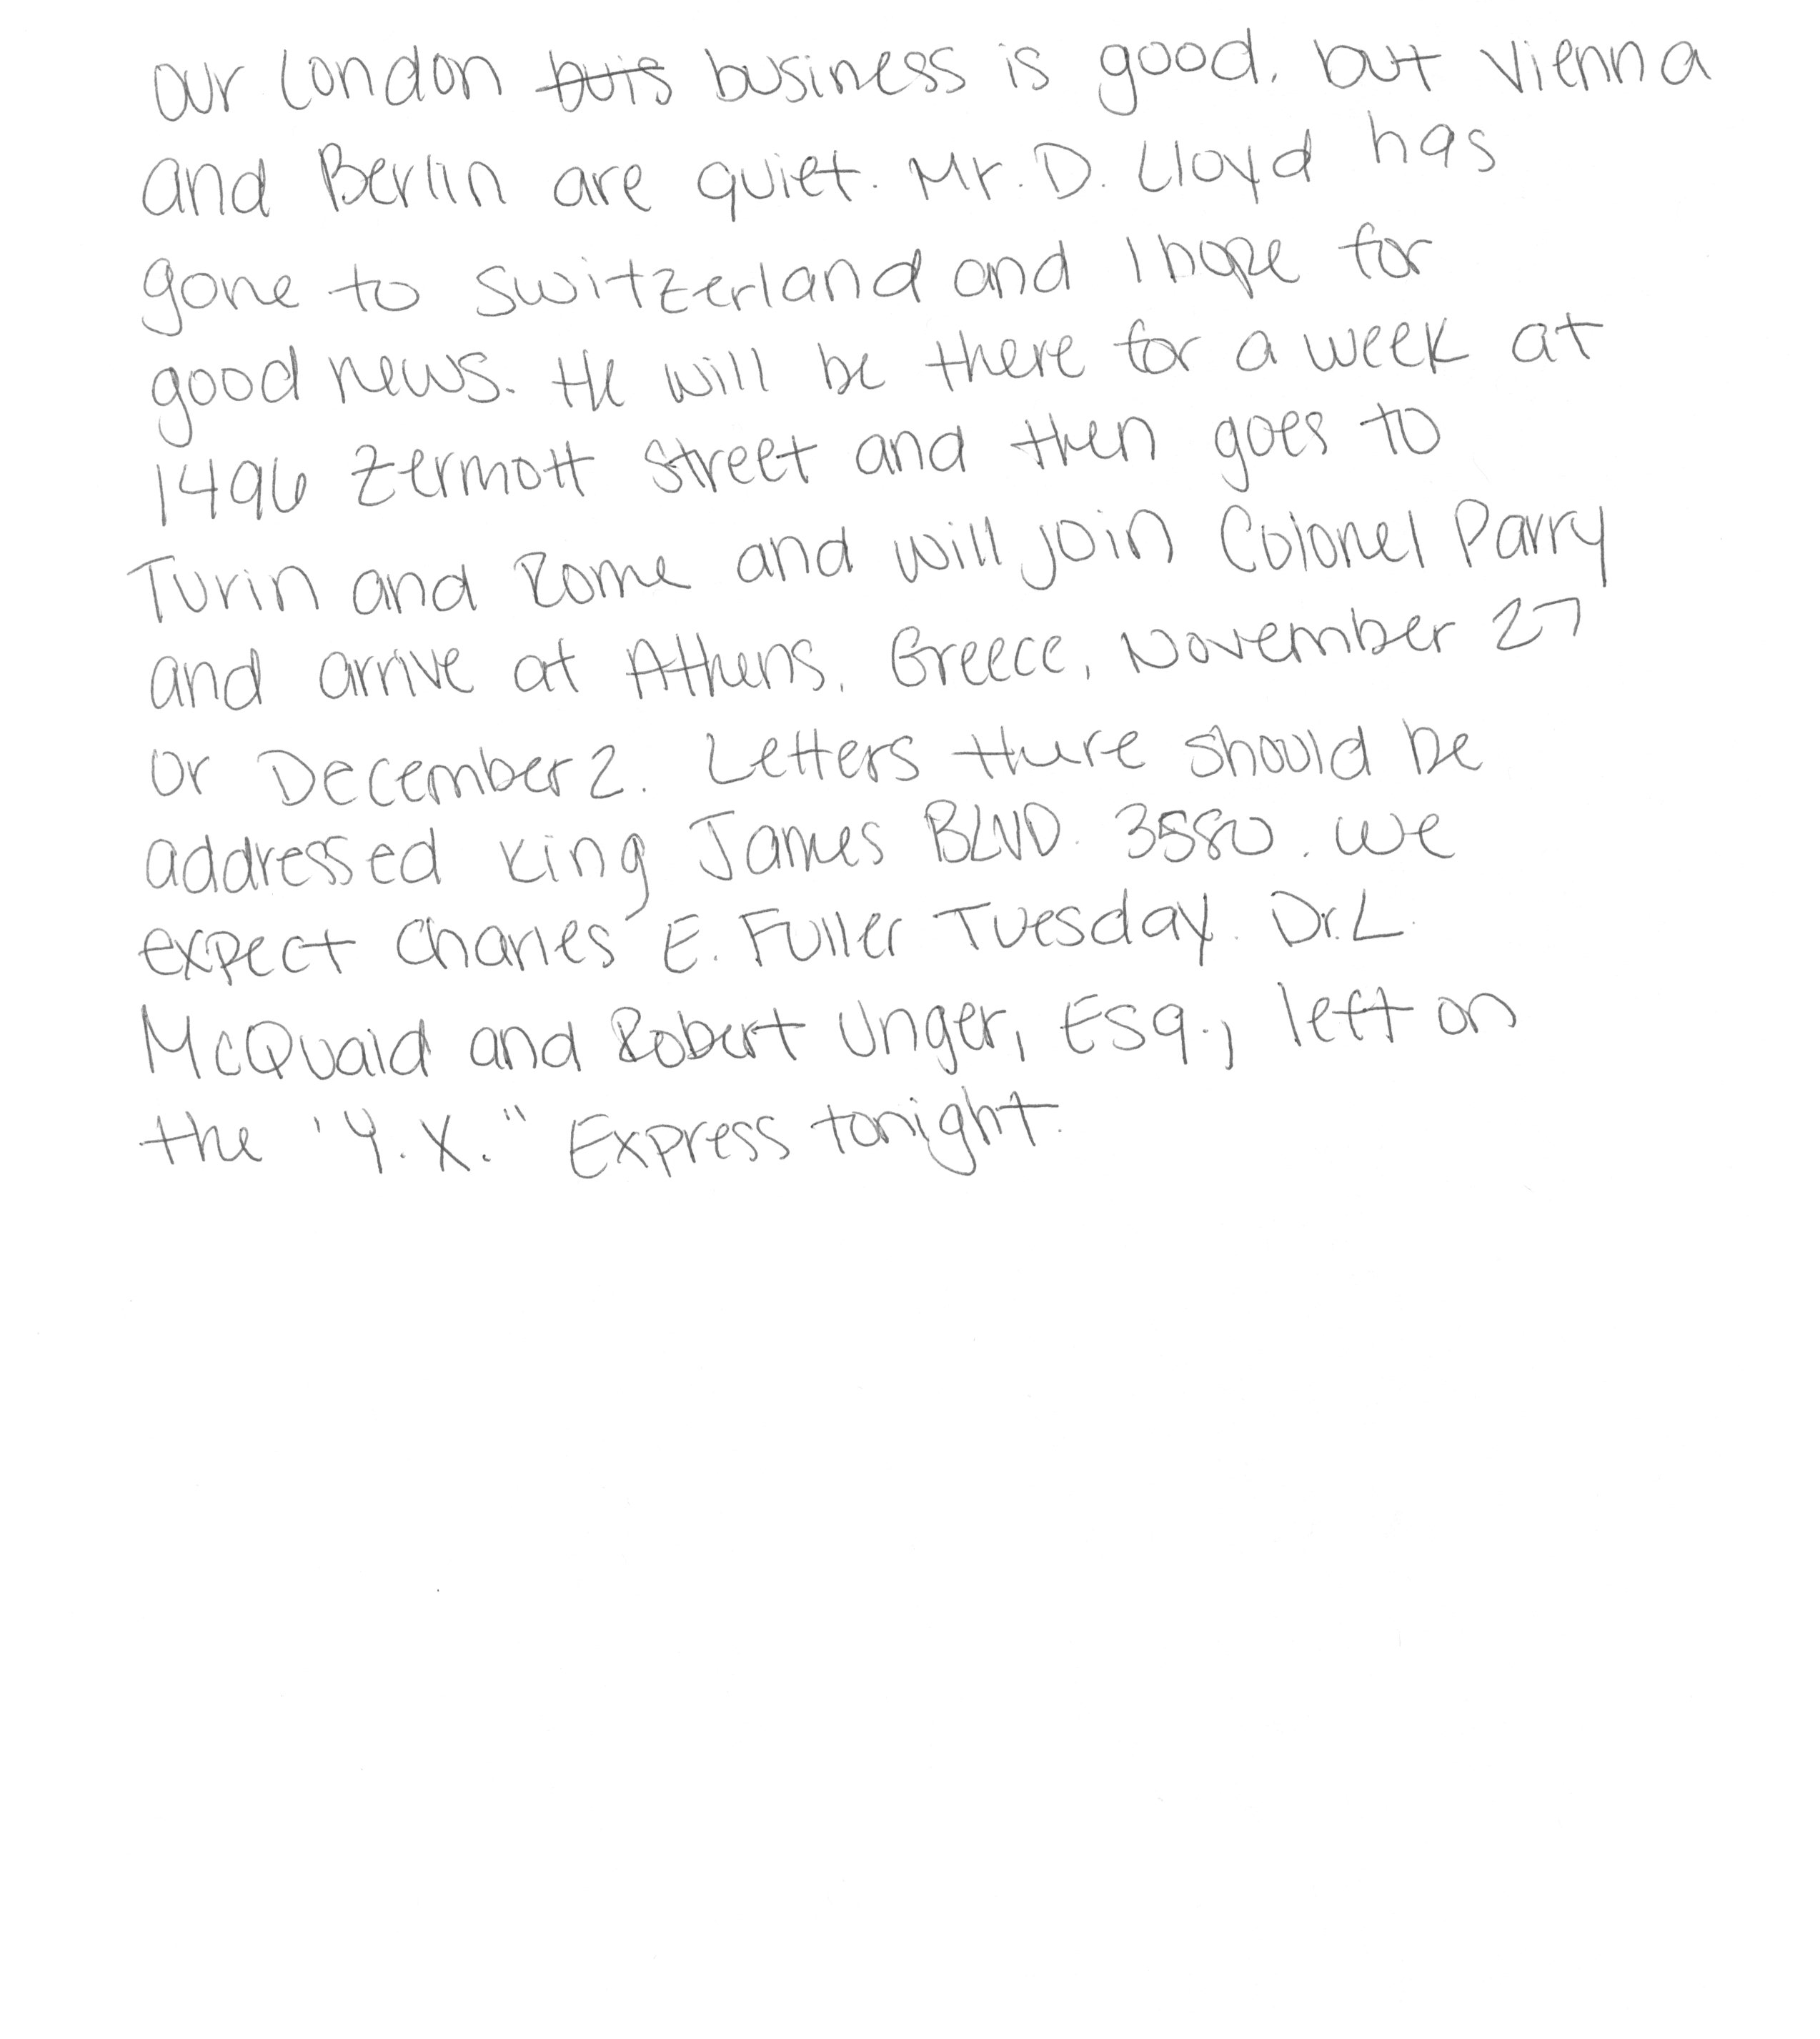 our London ~~buis~~ business is good, but Vienna
and Berlin are quiet. Mr. D. Lloyd has
gone to Switzerland and I hope for
good news. He will be there for a week at
1496 Zermott Street and then goes to
Turin and Rome and will join Colonel Parry
and arrive at Athens, Greece, November 27
or December 2. Letters there should be
addressed King James BLVD. 3580. We
expect Charles E. Fuller Tuesday. Dr. L.
McQuaid and Robert Unger, Esq., left on
the "Y.X." Express tonight.